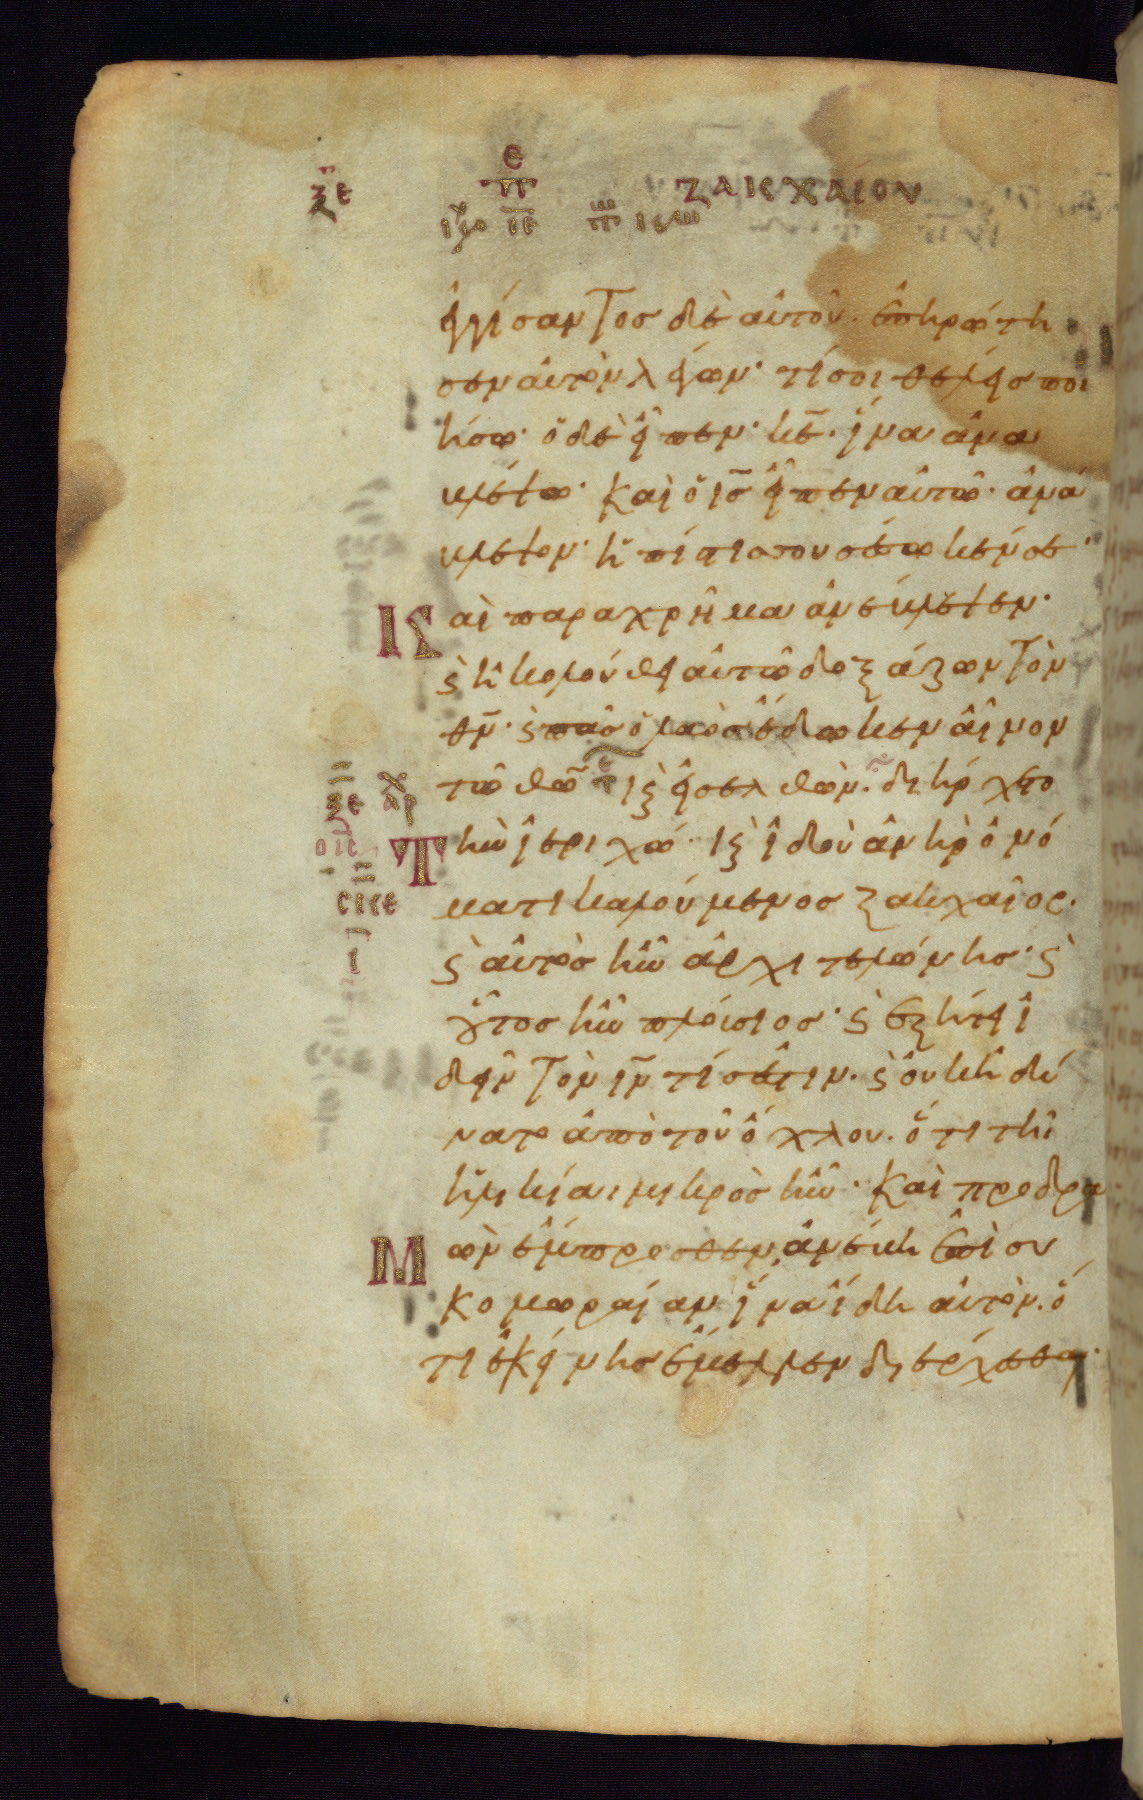 ξε
ε
π ζακχαίου
γγίσαντος δὲ αὐτοῦ· ἐπηρώτη
σεν αὐτὸν λέγων· τί σοι θέλεις ποι
ήσω· ὁ δὲ εἶπεν· κε̄· ἵνα ἀνα
βλέψω· Καὶ ὁ ις̄ εἶπεν αὐτῶ· ἀνά
βλεψον· ἡ πίστις σου σέσωκέν σε·
Κ αὶ παραχρῆμα ἀνέβλεψεν·
ϛ ἠκολούθει αὐτῶ δοξάζων τὸν
θν̄· ϛ πᾶς ὁ λαὸς ἰδὼν ἔδωκεν αἶνον
τῶ θῶ Κ εἰσελθὼν· διήρχετο
Τ ὴν ἱεριχώ· Κ ἰδοὺ ἀνὴρ ὀνό
ματι καλούμενος ζακχαῖος·
ϛ αὐτὸς ἦν ἀρχιτελώνης· ϛ
οὗτος ἦν πλούσιος· ϛ ἐζήτει ἰ
δεῖν τὸν ιν̄ τίς ἐστιν· ϛ οὐκ ἠδύ
νατο ἀπὸ τοῦ ὄχλου· ὅτι τῆ
ἡλικία μικρὸς ἦν· Καὶ προδρα
Μ ὼν ἔμπροσθεν, ἀνέβη ἐπὶ συ
κομωραίαν ἵνα ἴδη αὐτόν· ὅ
τι ἐκείνης ἔμελλεν διέρχεσθαι·